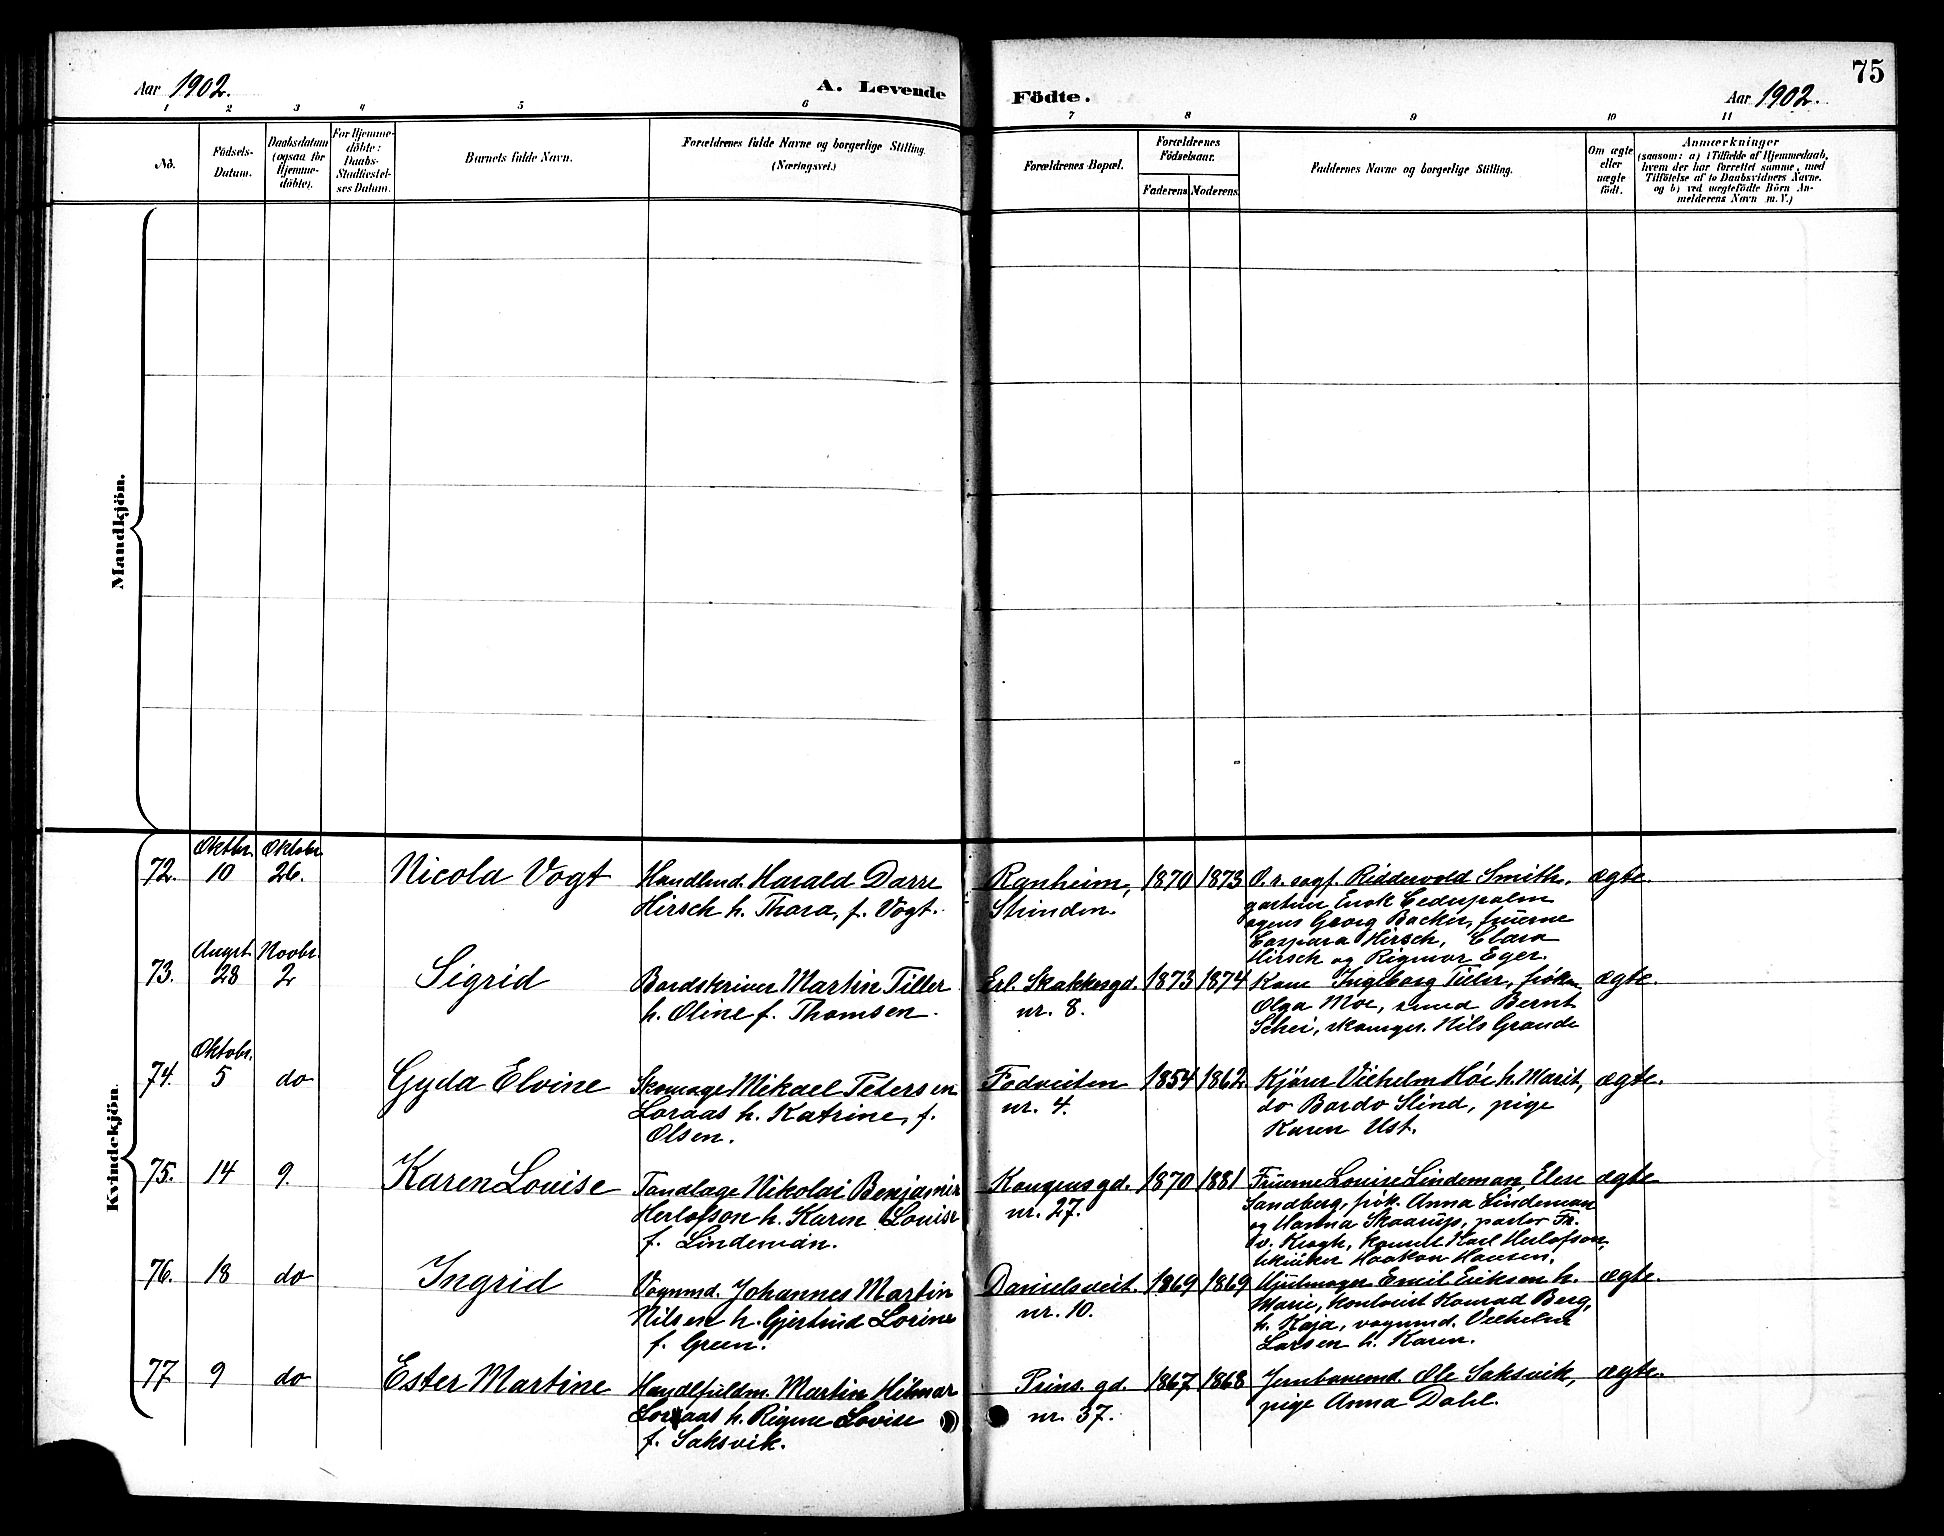 75
Aar 1902.
A. Levende Födte.
Aar 1902.
1 2 3 4 5 6 7 8 9 10 11
No.
Födsels-Datum.
Daabsdatum (ogsaa for Hjemme-döbte).
For Hjemme-döbte: Daabs-Stadfæstel-ses Datum.
Barnets fulde Navn.
Forældrenes fulde Navne og borgerlige Stilling.
(Næringsvei.)
Forældrenes Bopæl.
Forældrenes Födselsaar.
Faderens. Moderens.
Faddernes Navne og borgerlige Stilling.
Om ægte eller uægte födt.
Anmærkninger
(saasom: a) i Tilfælde af Hjemmedaab,
hvem der har forrettet samme, med
Tilföielse af to Daabsvidners Navne,
og b) ved uægtefödte Börn An-
melderens Navn m. V.)
Mandkjön.
Kvindekjön
72. Oktbr. 10 Oktobr. 26. Nicola Vogt
Handlmd. Harald Darre
Hirsch h. Thora, f. Vogt.
Ranheim,
Strinden.
1870 1873
O.r. sagf. Riddervold Smith,
gartner Enok Cederpalm
agent Georg Backer, fruerne
Caspara Hirsch, Clara
Hirsch og Rigmor Eger.
ægte.
73. Augst. 28 Novbr. 2 Sigrid
Bordskriver Martin Tiller
h. Oline f. Thomsen.
Erl. Skakkesgd.
nr. 8.
1873 1874
Kone Ingeborg Tiller, frøken
Olga Moe, smed Bernt
Schei, skomgr. Nils Grande
ægte.
74. Oktobr. 5 do Gyda Elvine
Skomage Mikael Petersen
Loraas h. Katrine, f.
Olsen.
Fodveiten
nr. 4.
1854 1862
Kjører Vilhelm Høe h. Marit,
do Bardo Slind, pige
Karen Ust.
ægte.
75. 14 9. Karen Louise
Tandlæge Nikolai Benjamin
Herlofson h. Karen Louise
f. Lindeman.
Kongensgd.
nr. 27.
1870 1881
Fruerne Louise Lindeman, Elese
Sandberg, frøk. Anna Lindeman
og Hanna Skaarup, pastor Fr.
v. Krogh, Karl Herlofson,
tekniker Haakon Hansen.
ægte
76. 18 do Ingrid
Vognmd. Johannes Martin
Nilsen h. Gjertrud Lorine
f. Green.
Danielsveit.
nr. 10.
1869 1869
Hjulmager Emil Eriksen h.
Marie, Konrad Berg,
h. Kaja, vognmd. Vilhelm
Larsen h. Karen.
ægte.
77 9 do Ester Martine
Handelfuldm. Martin Hilmar
Loraas h. Rigme Lovise
f. Saksvik.
Prins. gd.
nr. 37.
1867 1868
Jernbanemd. Ole Saksvik,
pige Anna Dahl.
ægte.